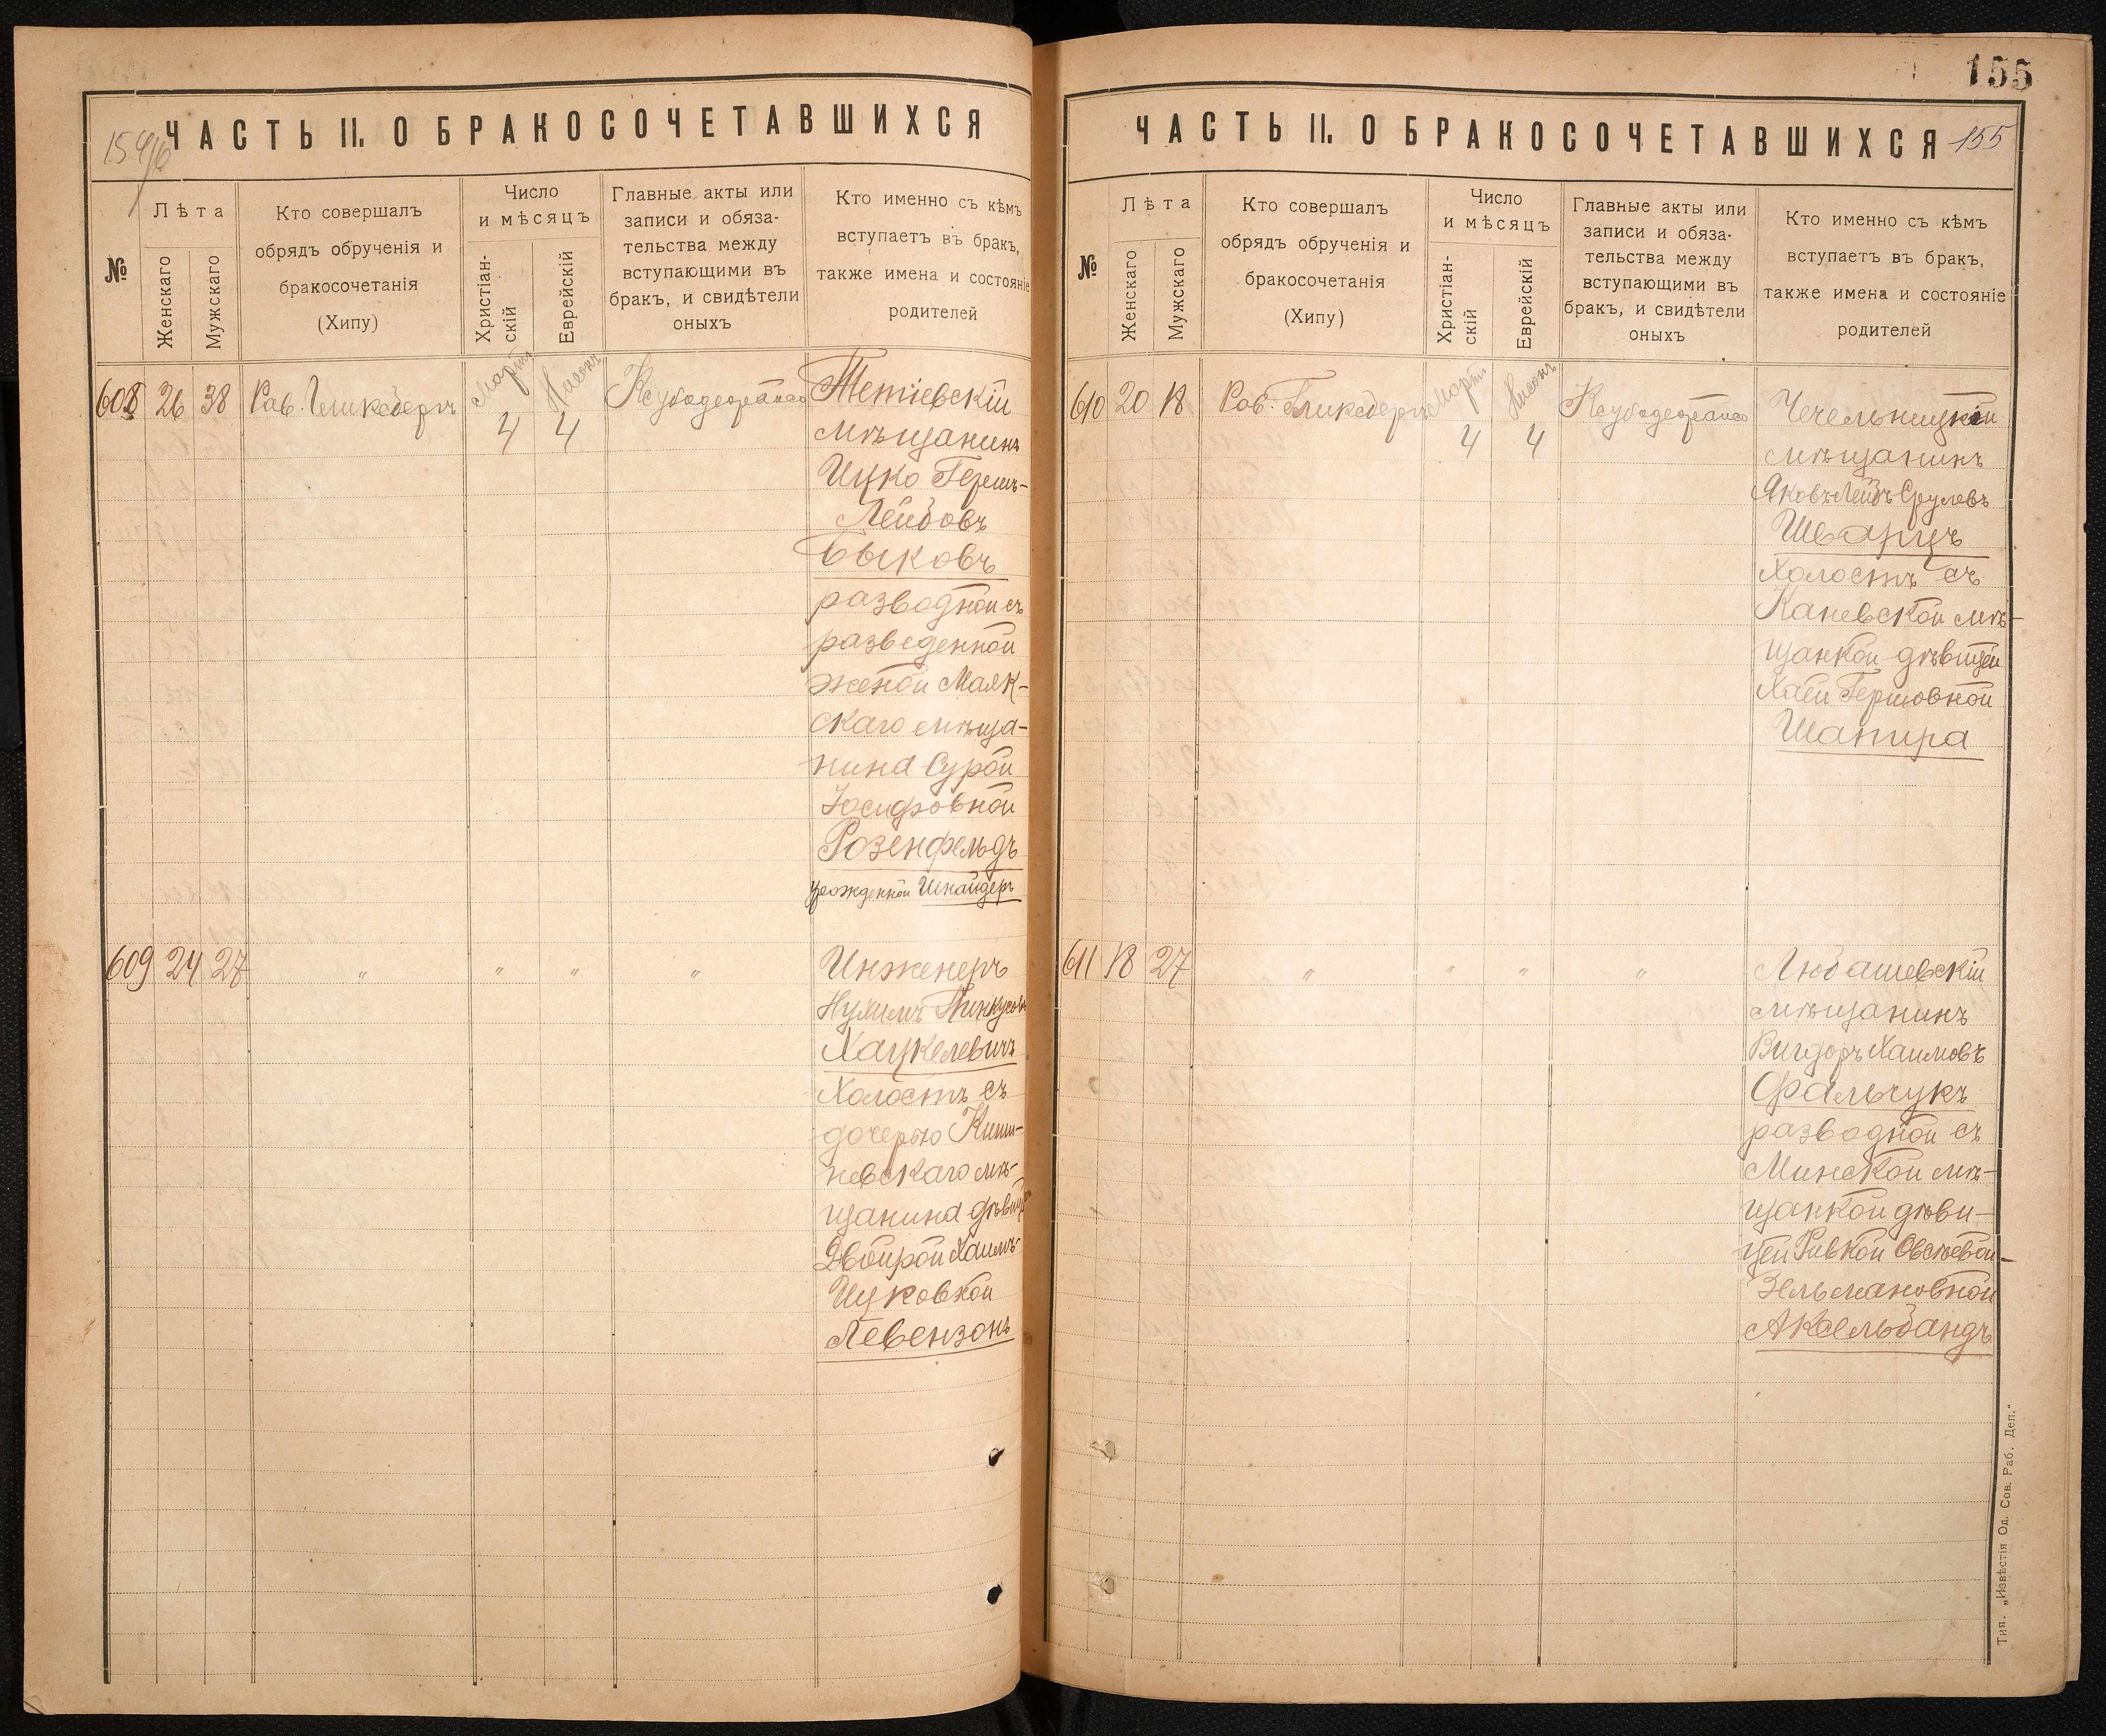 154/б
ЧАСТЬ II. О БРАКОСОЧЕТАВШИХСЯ
№
Лѣта
Женскаго
Мужскаго
Кто совершалъ
обрядъ обрученія и
бракосочетанія
(Хипу)
Число
и мѣсяцъ
Христіан-
скій
Еврейскій
Главные акты или
записи и обяза-
тельства между
вступающими въ
бракъ, и свидѣтели
оныхъ
Кто именно съ кѣмъ
вступаетъ въ бракъ,
также имена и состояніе
родителей
608 26 38 Рав. Гликсбергъ Мартъ 4 Нисонъ 4
Тетіевскій
мѣщанинъ
Ицко Гершъ-
Лейбовъ
Быковъ
разводной съ
разведенной
женой Маяк-
скаго мѣща-
нина Сурой
Іосифовной
Розенфельдъ
урожденной Шнайдеръ
609 24 27 " " " "
Инженеръ
Нухимъ Пинкусовъ
Хацкелевичъ
Холостъ съ
дочерью Киши-
невскаго мѣ-
щанина дѣвицей
Двойрой Хаимъ-
Ицковной
Левензонъ
155
ЧАСТЬ II. О БРАКОСОЧЕТАВШИХСЯ 155
№
Лѣта
Женскаго
Мужскаго
Кто совершалъ
обрядъ обрученія и
бракосочетанія
(Хипу)
Число
и мѣсяцъ
Христіан-
скій
Еврейскій
Главные акты или
записи и обяза-
тельства между
вступающими въ
бракъ, и свидѣтели
оныхъ
Кто именно съ кѣмъ
вступаетъ въ бракъ,
также имена и состояніе
родителей
610 20 18 Рав. Гликсбергъ Мартъ 4 Нисонъ 4
Чечельницкій
мѣщанинъ
Яковъ-Лейбъ Срулевъ
Шварцъ
Холостъ съ
Каневской мѣ-
щанкой дѣвицей
Хаей Гершовной
Шапира
611 18 27 " " " "
Любашевскій
мѣщанинъ
Вигдоръ Хаимовъ
Фальчукъ
разводной съ
Минской мѣ-
щанкой дѣви-
цей Ривкой Овсѣевой-
Зельмановной
Аксельбандъ
Тип. „Извѣстія Од. Сов. Раб. Деп."